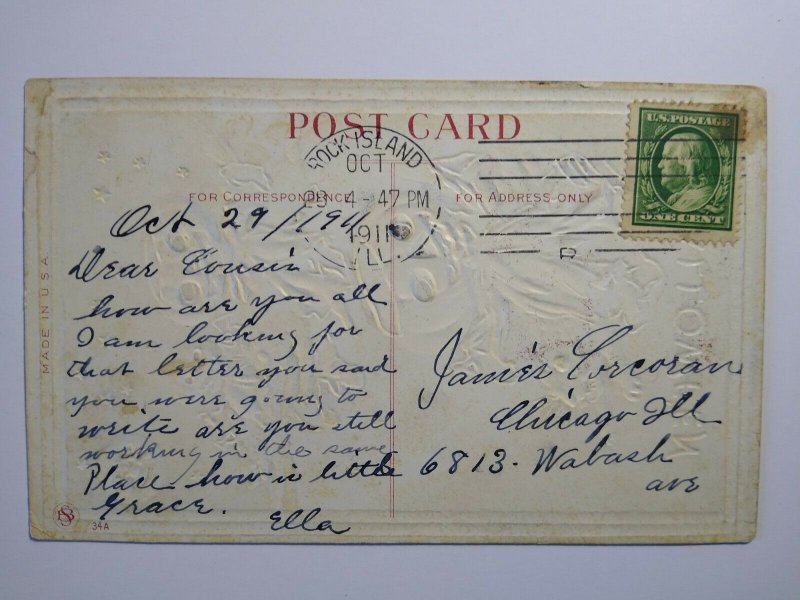 POST CARD
ROCK ISLAND
OCT
29 4-47 PM
1911
ILL.
U.S. POSTAGE
ONE CENT
FOR CORRESPONDENCE
FOR ADDRESS ONLY
MADE IN U.S.A.
Oct 29/1911
Dear Cousin
how are you all
I am looking for
that letter you said
you were going to
write are you still
working in the same
Place how is little
Grace.
Ella
James Corcoran
Chicago Ill
6813. Wabash
ave
34A